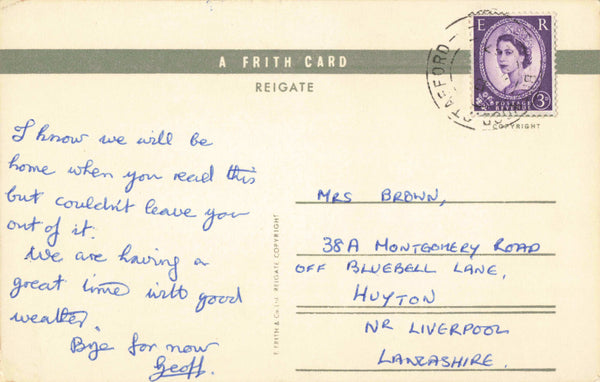 A FRITH CARD
REIGATE
E R
POSTAGE
REVENUE
3D
STAFFORD
COPYRIGHT
I know we will be
home when you read this
but couldn't leave you
out of it.
We are having a
great time with good
weather.
Bye for now
Geoff.
F. FRITH & Co Ltd. REIGATE COPYRIGHT
MRS BROWN,
38A MONTGOMERY ROAD
OFF BLUEBELL LANE,
HUYTON
NR LIVERPOOL
LANCASHIRE.